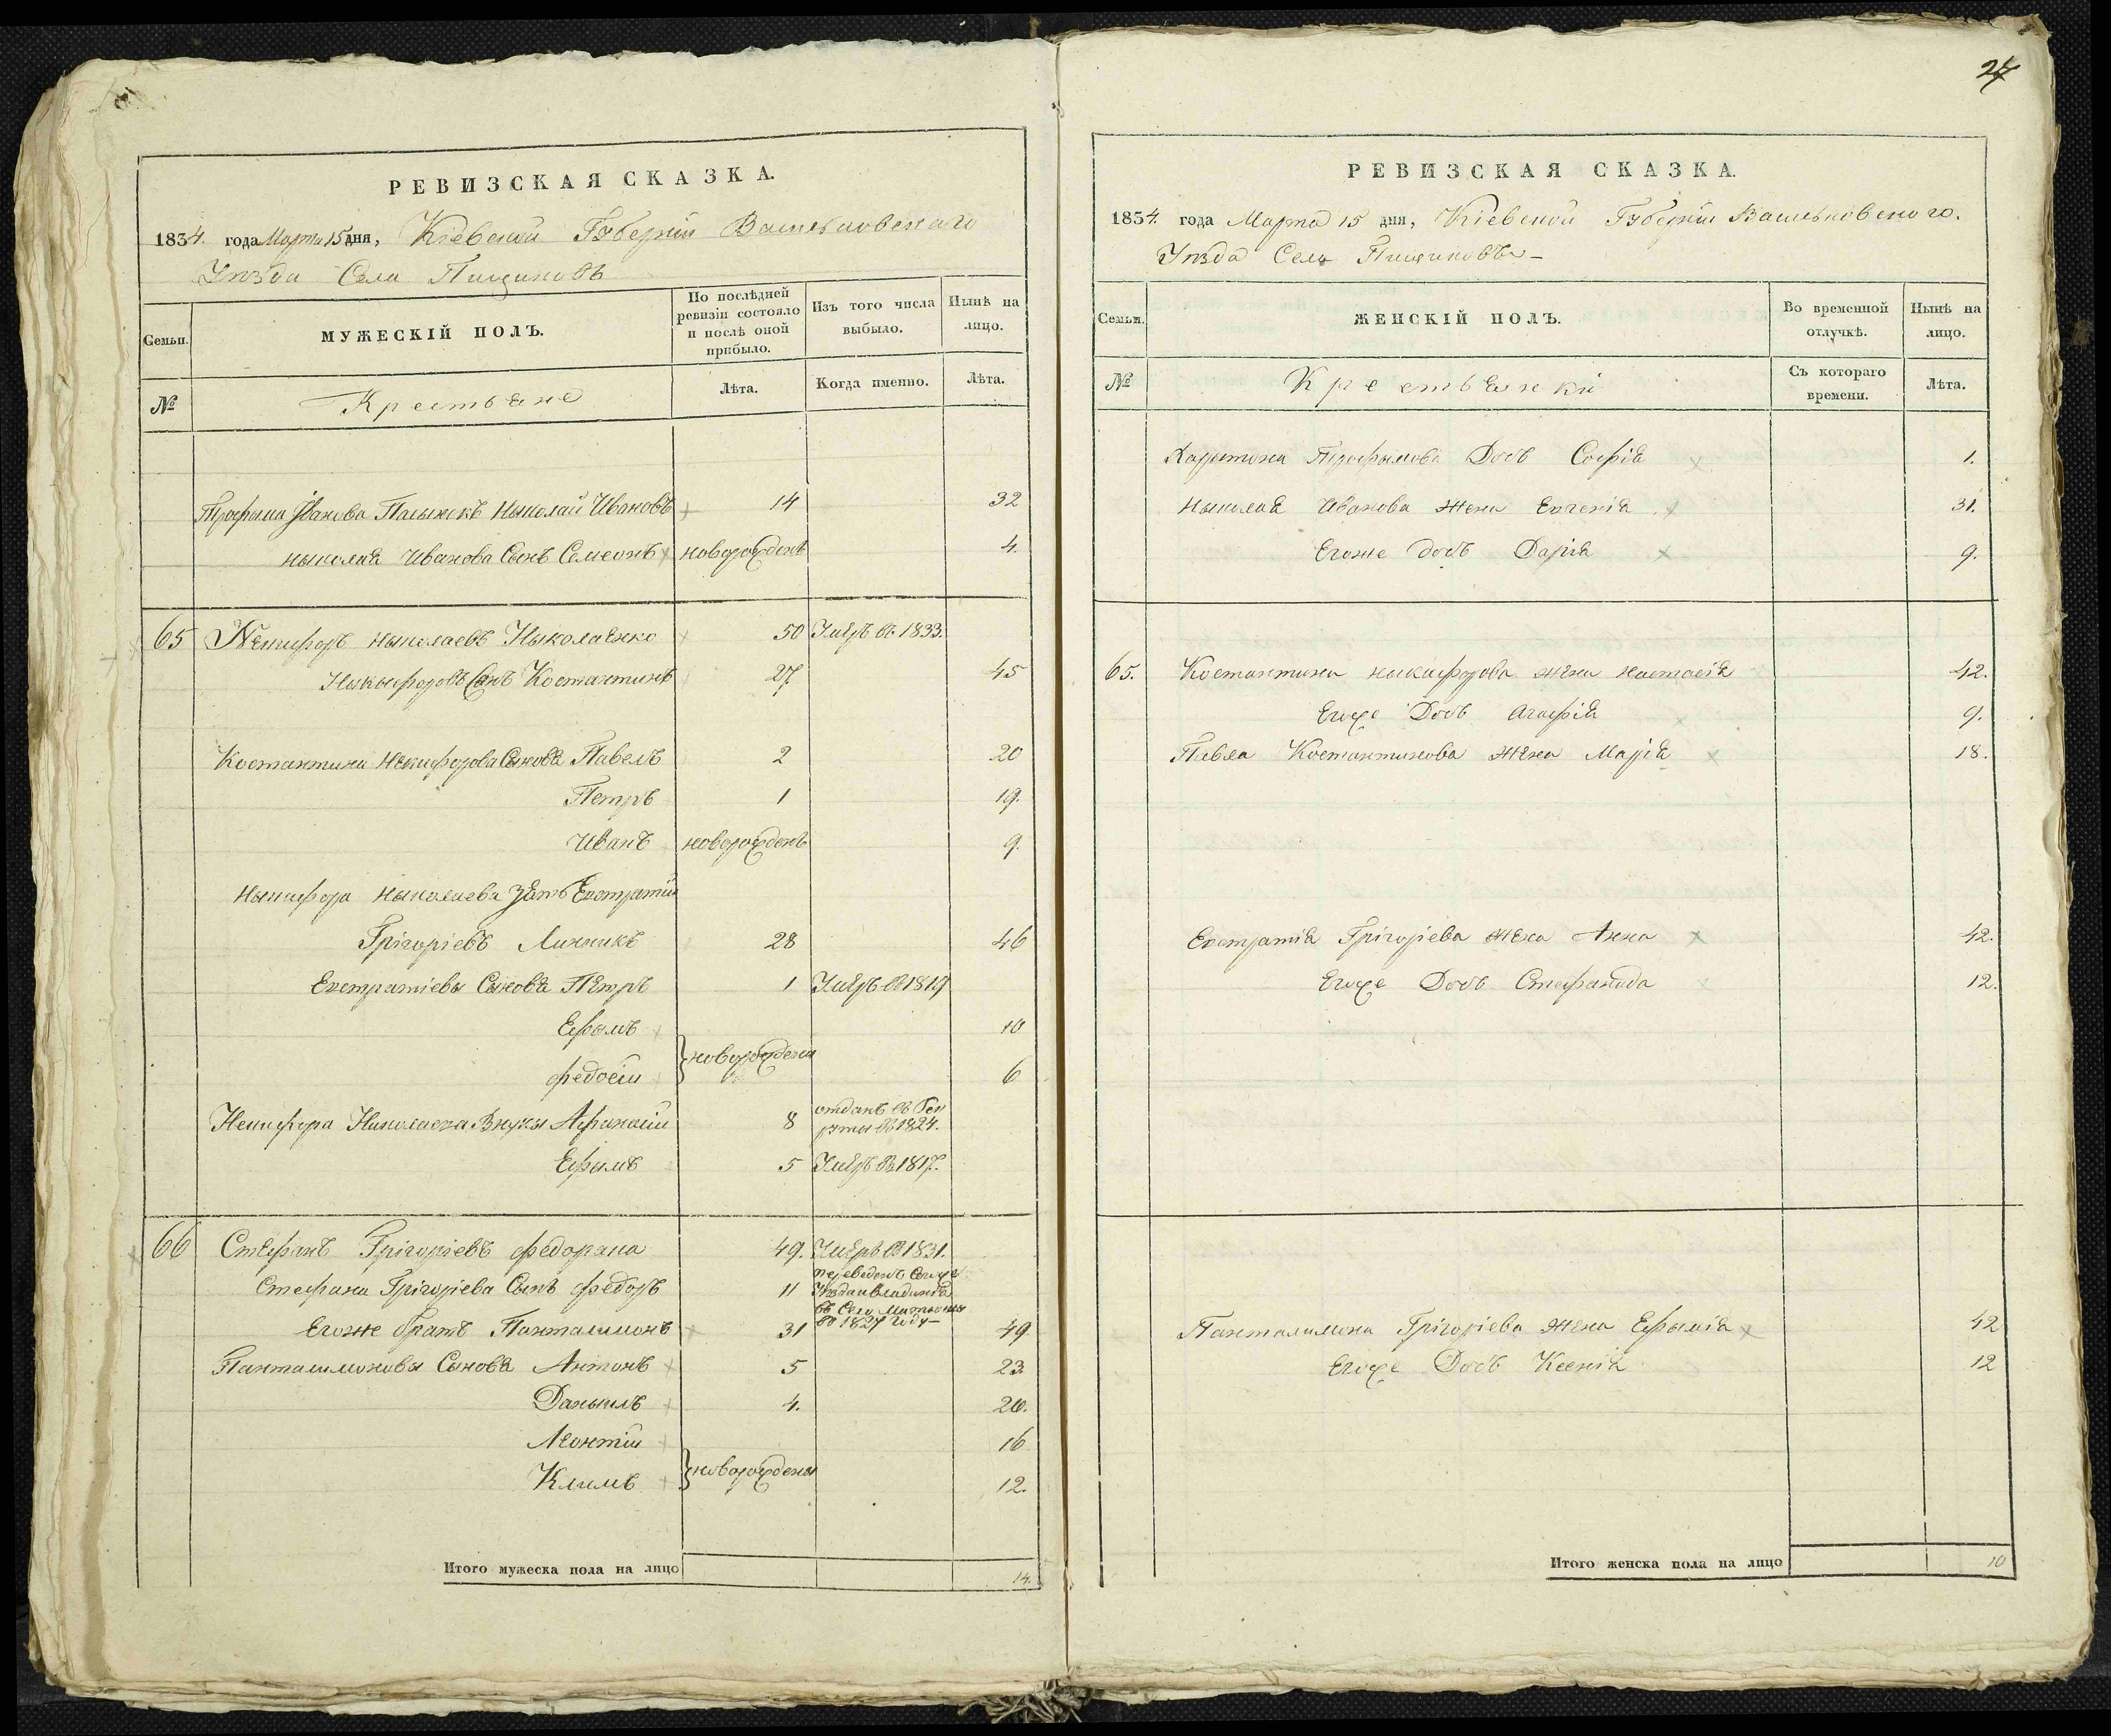 РЕВИЗСКАЯ СКАЗКА.
1834. года Марта 15 дня, Кіевской Губерніи Васильковскаго
Уѣзда Села Пищиковъ
Семьи.
МУЖЕСКІЙ ПОЛЪ.
По послѣдней ревизіи состояло и послѣ оной прибыло.
Изъ того числа выбыло.
Нынѣ на лицо.
№
Крестьяне
Лѣта.
Когда именно.
Лѣта.
Трофыма Иванова Пасынокъ Ныколай Ивановъ 14 32
Ныколая Иванова Сынъ Семеонъ новорожденъ 4.
65 Некифоръ Ныколаевъ Ныколаенко 50 Умеръ въ 1833.
Ныкыфоровъ Сынъ Костантинъ 27. 45
Костантина Некифорова Сыновя Павелъ 2 20
Петръ 1 19.
Иванъ новорожденъ 9.
Ныкифора Ныколаева Зять Евстратій
Грігоріевъ Линникъ 28 46
Евстратіевы Сыновя Петръ 1 Умеръ въ 1819
Ефымъ 10
} новорождены
Федосій 6
Некифора Николаева Внуки Афанасій 8 отданъ въ Рек
руты въ 1824.
Ефымъ 5 Умеръ въ 1817.
66 Стефанъ Грігоріевъ Федорака 49. Умеръ въ 1831.
Стефана Грігоріева Сынъ Федоръ 11 переведенъ Сегоже
Уѣзда владинія
въ Село
въ 1827 Году
Егоже братъ Панталимонъ 31 49
Панталимоновы Сыновя Антонъ 5 23.
Данылъ 4. 20.
Леонтій 16
} новорождены
Климъ 12.
Итого мужеска пола на лицо 14.
24
РЕВИЗСКАЯ СКАЗКА.
1834. года Марта 15 дня, Кіевской Губерніи Васильковского.
Уѣзда Села Пищиковъ
Семьи.
ЖЕНСКІЙ ПОЛЪ.
Во временной отлучкѣ.
Нынѣ на лицо.
№
Крестьянки
Съ котораго времени.
Лѣта.
Трофымова Дочь Софія 1.
Ныколая Иванова жена Евгенія 31.
Егоже дочь Дарія 9.
65. Костантина Никифорова жена Настасія 42.
Егоже Дочь Агафія 9.
Павла Костантинова жена Марія 18.
Евстратія Грігоріева жена Анна 42.
Егоже Дочь Стефанида 12.
Панталимона Грігоріева жена Ефымія 42
Егоже Дочь Ксенія 12
Итого женска пола на лицо 10